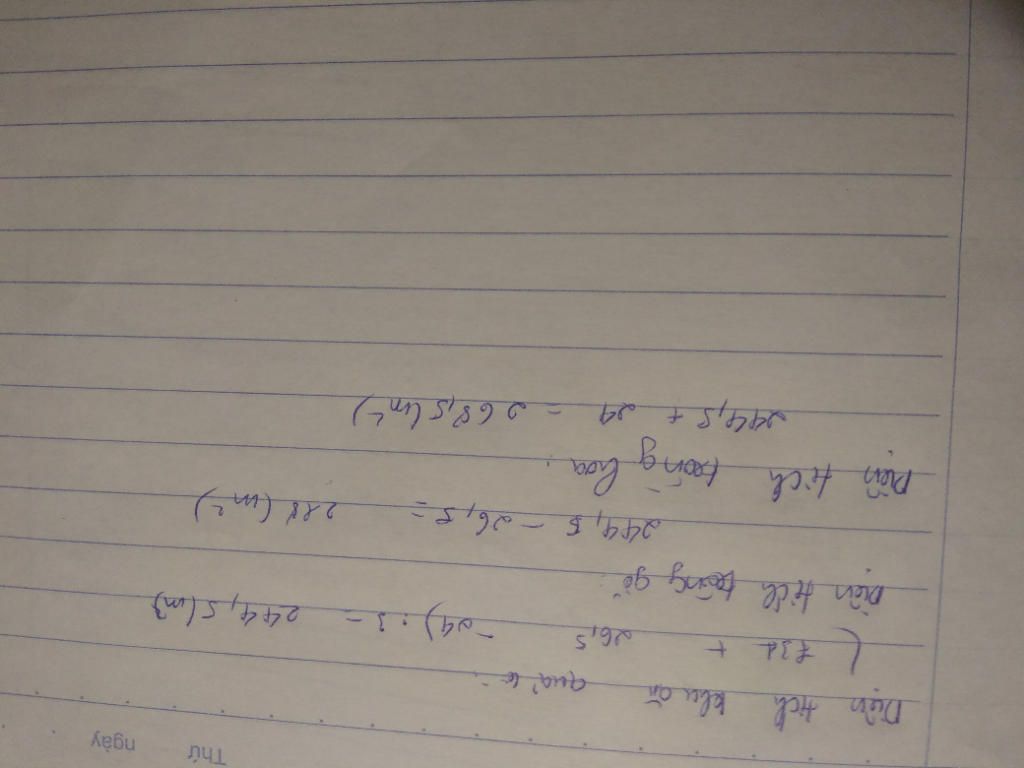 Thứ ngày
Diện tích khu ăn quả là:
( 731 + 26,5 - 24) : 3 = 244,5 (m²)
Diện tích trồng gỗ:
244,5 - 26,5 = 218 (m²)
Diện tích trồng hoa:
244,5 + 24 = 268,5 (m²)